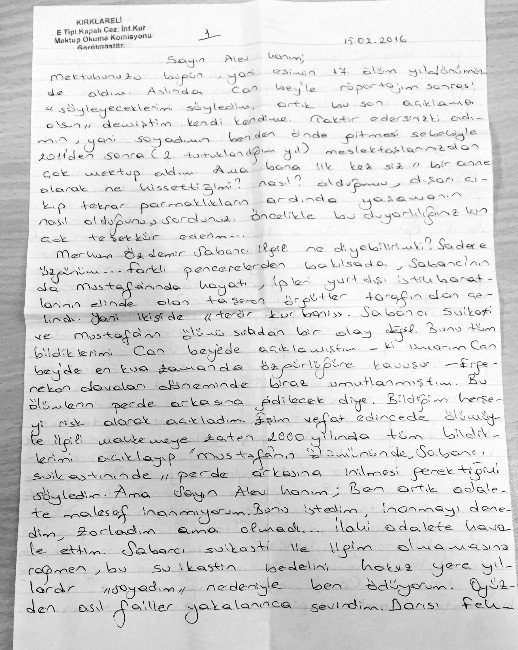 KIRKLARELİ
E Tipi Kapalı Cez. İnf.Kur
Mektup Okuma Komisyonu
Görülmüştür.
1
15.02.2016
Sayın Alev hanım;
Mektubunuzu bugün, yani eşimin 17 ölüm yıldönümün
de aldım. Aslında Can bey'le röportajım sonrası
"söyleyeceklerimi söyledim, artık bu son açıklama
olsun" demiştim kendi kendime. Taktir edersinizki adı-
mın, yani soyadımın benden önde gitmesi sebebiyle
2011'den sonra (2 tutuklandığım yıl) meslektaşlarınızdan
çok mektup aldım. Ama bana ilk kez siz "bir anne
olarak ne hissettiğimi? nasıl? olduğumu, dışarı çı-
kıp tekrar parmaklıkların, ardında yaşamanın
nasıl olduğunu" sordunuz. Öncelikle bu duyarlılığınız için
çok teşekkür ederim...
Merhum Özdemir Sabancı ilgili ne diyebilirimki? Sadece
üzgünüm... farklı pencerelerden bakılsada, Sabancı'nın
da Mustafanında hayatı, ipleri yurtdışı istihbarat-
larının elinde olan taşeron örgütler tarafından ça-
lındı. Yani ikiside "terör kurbanı". Sabancı suikasti
ve Mustafa'nın ölümü sıradan bir olay değil. Bunu tüm
bildiklerimi Can beyede açıklamıştım - ki umarım Can
bey'de en kısa zamanda özgürlüğüne kavuşur. - Erge-
nekon davaları döneminde biraz umutlanmıştım. Bu
ölümlerin perde arkasına gidilecek diye. Bildiğim herşe-
yi risk olarak açıkladım. Eşim vefat edincede ölümüy-
le ilgili mahkemeye zaten 2000 yılında tüm bildik-
lerimi açıklayıp "Mustafa'nın ölümününde, Sabancı
suikastininde" perde arkasına inilmesi gerektiğini
söyledim. Ama Sayın Alev hanım; Ben artık adale-
te malesef inanmıyorum. Bunu istedim, inanmayı dene-
dim, zorladım ama olmadı... İlahi adalete hava-
le ettim. Sabancı suikasti ile ilgim olmamasına
rağmen, bu suikastin bedelini haksız yere yıl-
lardır "soyadım" nedeniyle ben ödüyorum. O yüz-
den asıl failler yakalanınca sevindim. Darısı Feh-